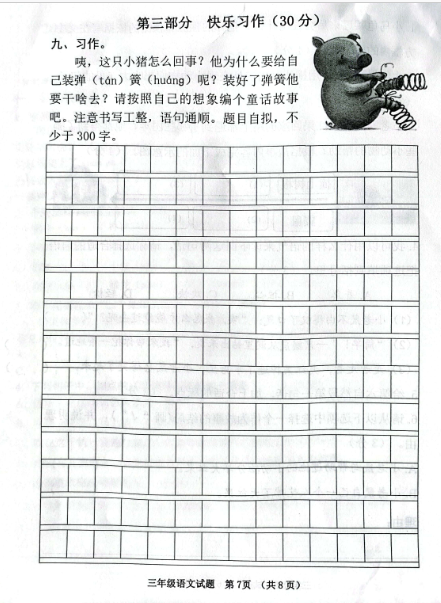 第三部分 快乐习作(30分)
九、习作。
咦,这只小猪怎么回事?他为什么要给自
己装弹(tán)簧(huáng)呢?装好了弹簧他
要干啥去?请按照自己的想象编个童话故事
吧。注意书写工整,语句通顺。题目自拟,不
少于300字。
三年级语文试题 第7页 (共8页)